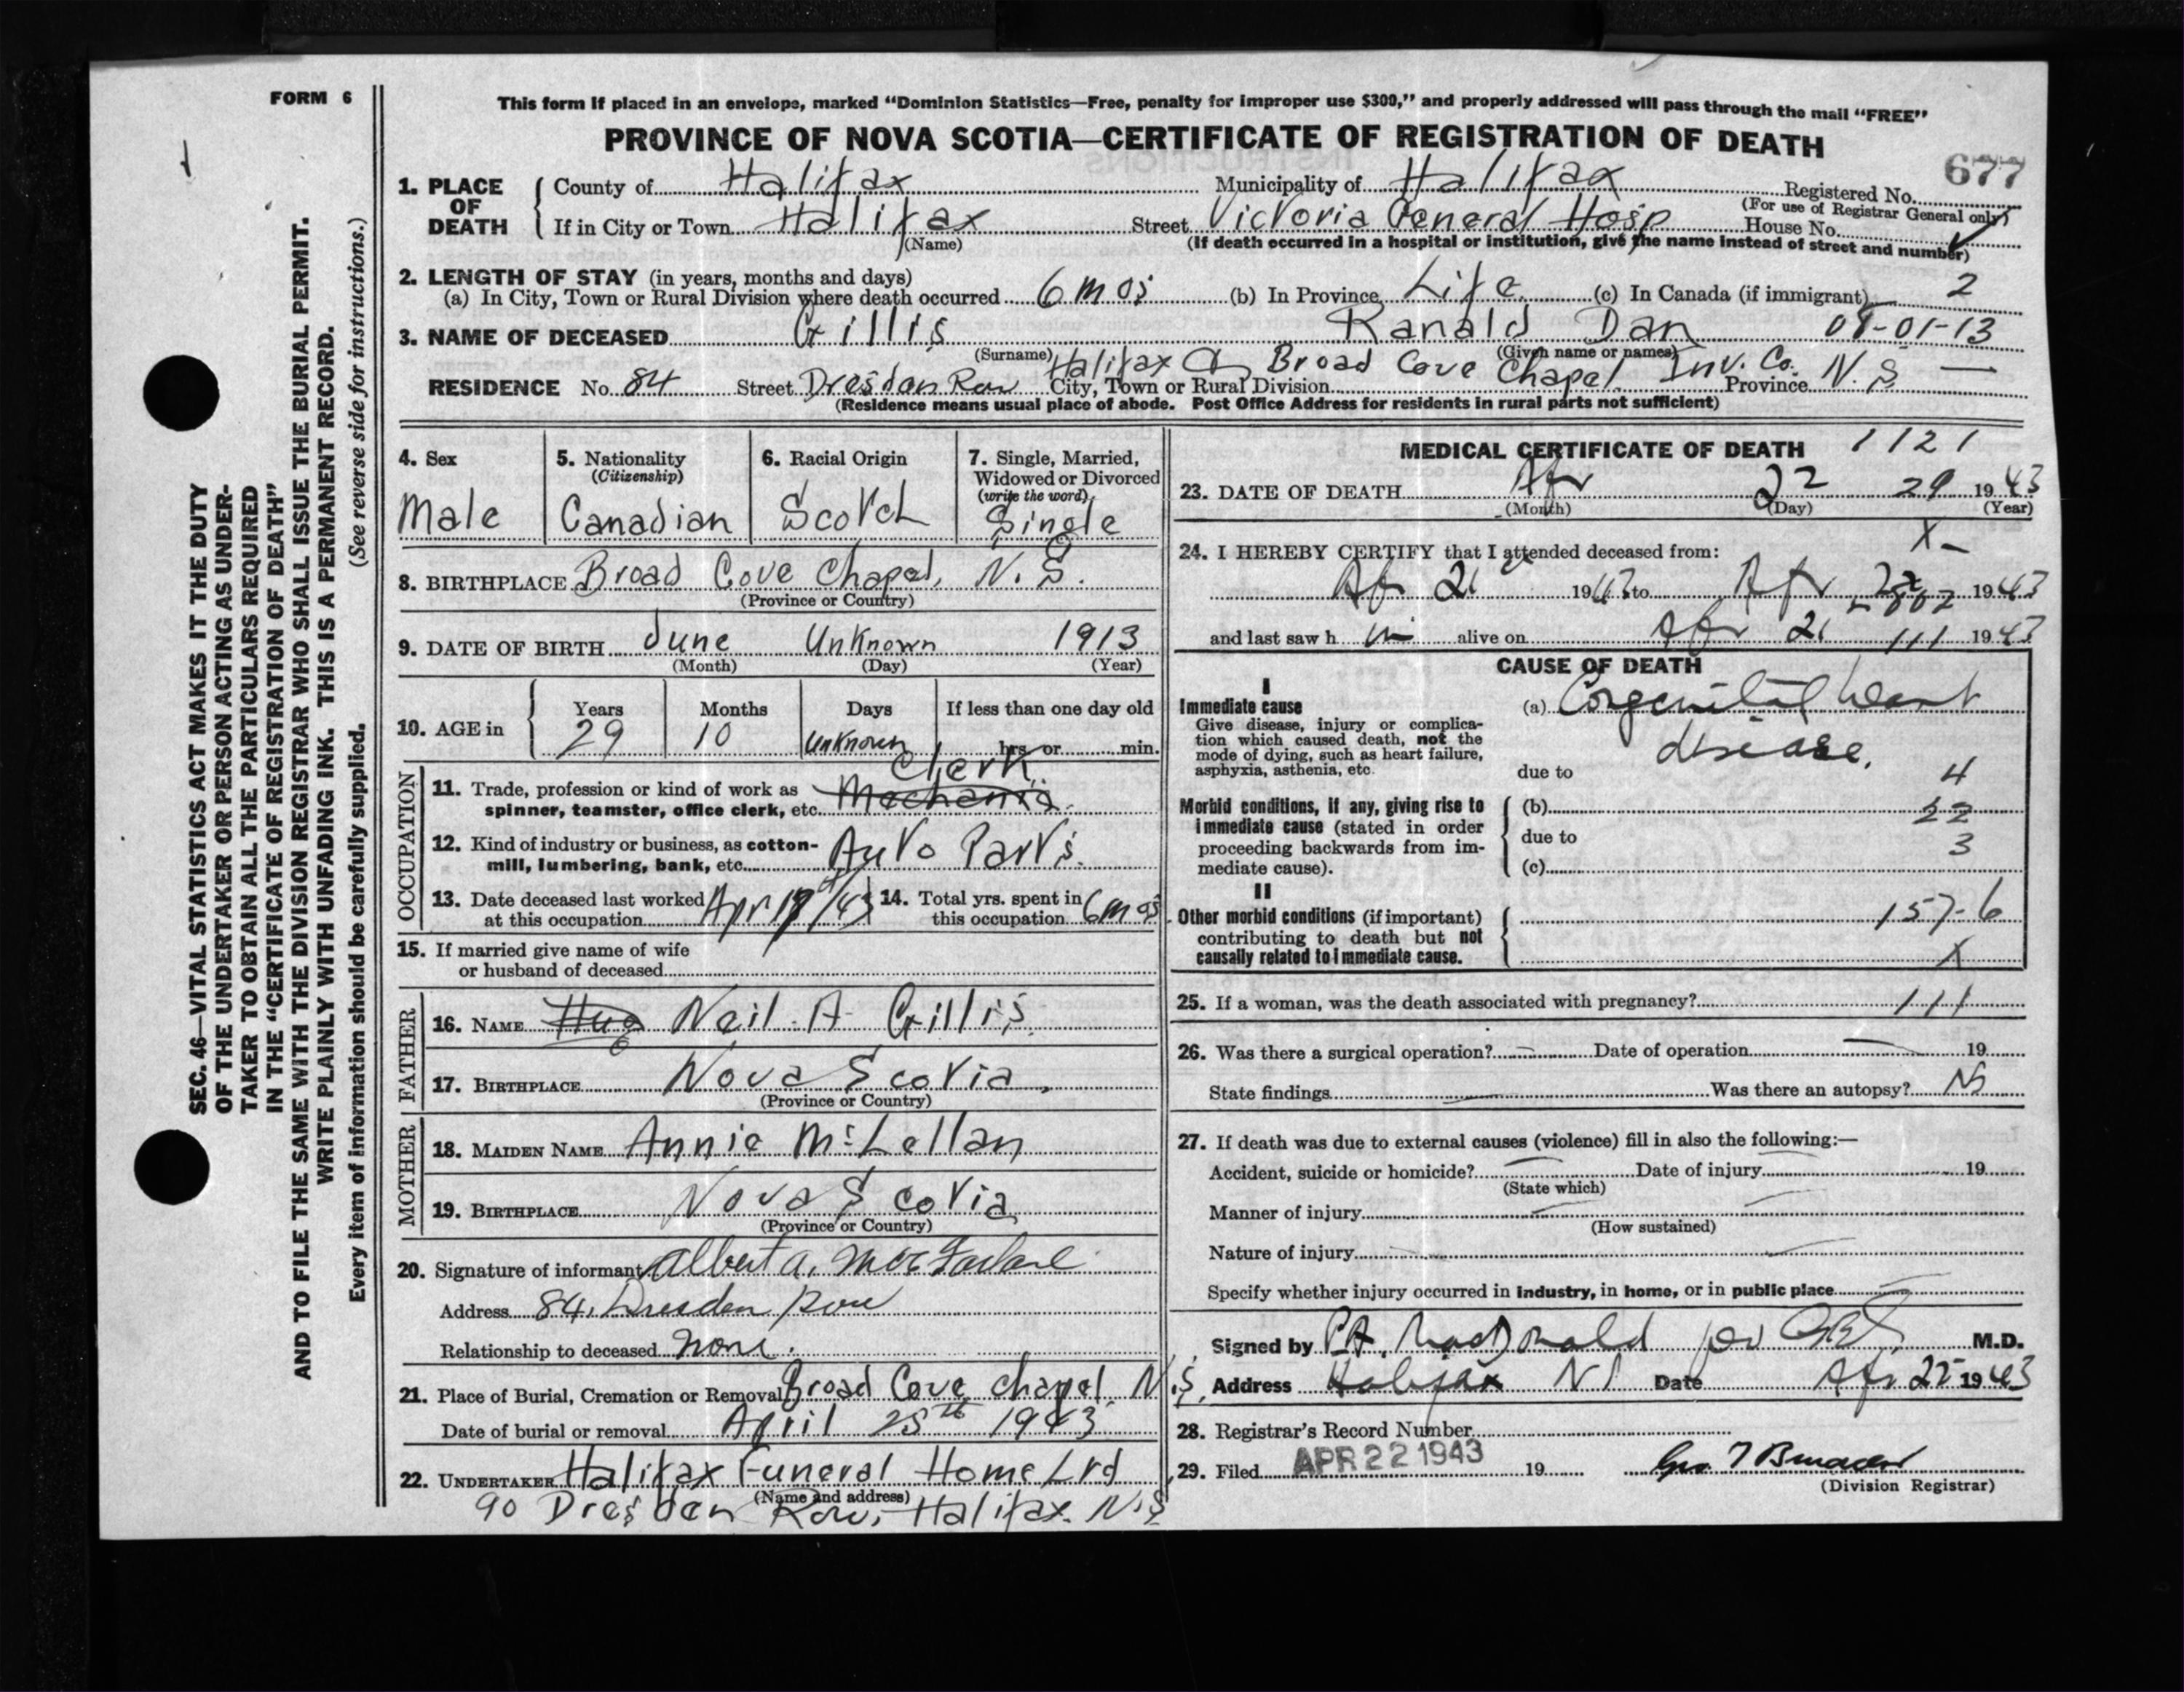 FORM 6
This form if placed in an envelope, marked “Dominion Statistics—Free, penalty for improper use $300,” and properly addressed will pass through the mail “FREE”
PROVINCE OF NOVA SCOTIA—CERTIFICATE OF REGISTRATION OF DEATH
677
SEC. 46—VITAL STATISTICS ACT MAKES IT THE DUTY
OF THE UNDERTAKER OR PERSON ACTING AS UNDER-
TAKER TO OBTAIN ALL THE PARTICULARS REQUIRED
IN THE “CERTIFICATE OF REGISTRATION OF DEATH”
AND TO FILE THE SAME WITH THE DIVISION REGISTRAR WHO SHALL ISSUE THE BURIAL PERMIT.
WRITE PLAINLY WITH UNFADING INK. THIS IS A PERMANENT RECORD.
Every item of information should be carefully supplied. (See reverse side for instructions.)
1. PLACE OF DEATH
County of Halifax Municipality of Halifax Registered No.
(For use of Registrar General only)
If in City or Town Halifax Street Victoria General Hosp House No.
(Name) (If death occurred in a hospital or institution, give the name instead of street and number)
2. LENGTH OF STAY (in years, months and days)
(a) In City, Town or Rural Division where death occurred 6 mos (b) In Province Life (c) In Canada (if immigrant) 2
3. NAME OF DECEASED Gillis Ranald Dan 08-01-13
(Surname) (Given name or names)
Halifax Broad Cove Chapel Inv. Co.
RESIDENCE No. 84 Street Dresden Row City, Town or Rural Division Province N.S. —
(Residence means usual place of abode. Post Office Address for residents in rural parts not sufficient)
4. Sex
Male
5. Nationality
(Citizenship)
Canadian
6. Racial Origin
Scotch
7. Single, Married,
Widowed or Divorced
(write the word)
Single
8. BIRTHPLACE Broad Cove Chapel, N.S.
(Province or Country)
9. DATE OF BIRTH June Unknown 1913
(Month) (Day) (Year)
10. AGE in Years Months Days If less than one day old
29 10 Unknown hrs. or min.
OCCUPATION
Clerk
11. Trade, profession or kind of work as Mechanic
spinner, teamster, office clerk, etc.
12. Kind of industry or business, as cotton-
mill, lumbering, bank, etc. Auto Parts.
13. Date deceased last worked
at this occupation Apr /43
14. Total yrs. spent in
this occupation 6 mos
15. If married give name of wife
or husband of deceased
FATHER
16. NAME Hug Neil A Gillis
17. BIRTHPLACE Nova Scotia,
(Province or Country)
MOTHER
18. MAIDEN NAME Annie McLellan
19. BIRTHPLACE Nova Scotia
(Province or Country)
20. Signature of informant Albert A.
Address 84, Dresden Row
Relationship to deceased None.
21. Place of Burial, Cremation or Removal Broad Cove Chapel N.S.
Date of burial or removal April 25th 1943
22. UNDERTAKER Halifax Funeral Home Ltd
(Name and address)
90 Dresden Row, Halifax. N.S
MEDICAL CERTIFICATE OF DEATH 1121
23. DATE OF DEATH Apr 22 29 1943
(Month) (Day) (Year)
X -
24. I HEREBY CERTIFY that I attended deceased from:
Apr 21st 1943 to Apr 22 1943
and last saw h im alive on Apr 21 111 1943
CAUSE OF DEATH
I
Immediate cause
Give disease, injury or complica-
tion which caused death, not the
mode of dying, such as heart failure,
asphyxia, asthenia, etc.
(a) Congenital heart
disease.
due to 4
Morbid conditions, if any, giving rise to
immediate cause (stated in order
proceeding backwards from im-
mediate cause).
(b) 22
due to 3
(c)
II
Other morbid conditions (if important)
contributing to death but not
causally related to immediate cause.
157-6
X
25. If a woman, was the death associated with pregnancy? 111
26. Was there a surgical operation? — Date of operation — 19
State findings — Was there an autopsy? No
27. If death was due to external causes (violence) fill in also the following:—
Accident, suicide or homicide? Date of injury 19
(State which)
Manner of injury
(How sustained)
Nature of injury
Specify whether injury occurred in industry, in home, or in public place
Signed by P.A. MacDonald per M.D.
Address Halifax NS Date Apr 22 1943
28. Registrar's Record Number
29. Filed APR 22 1943 19
(Division Registrar)